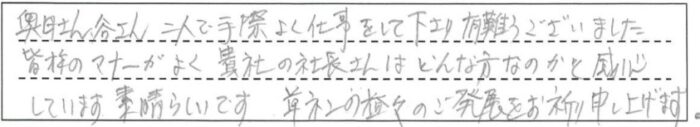 奥田さん谷さん 二人で手際よく仕事をして下さり有難うございました
皆様のマナーがよく 貴社の社長さんはどんな方なのかと感心
しています 素晴らしいです 草ネンの益々のご発展をお祈り申し上げます。